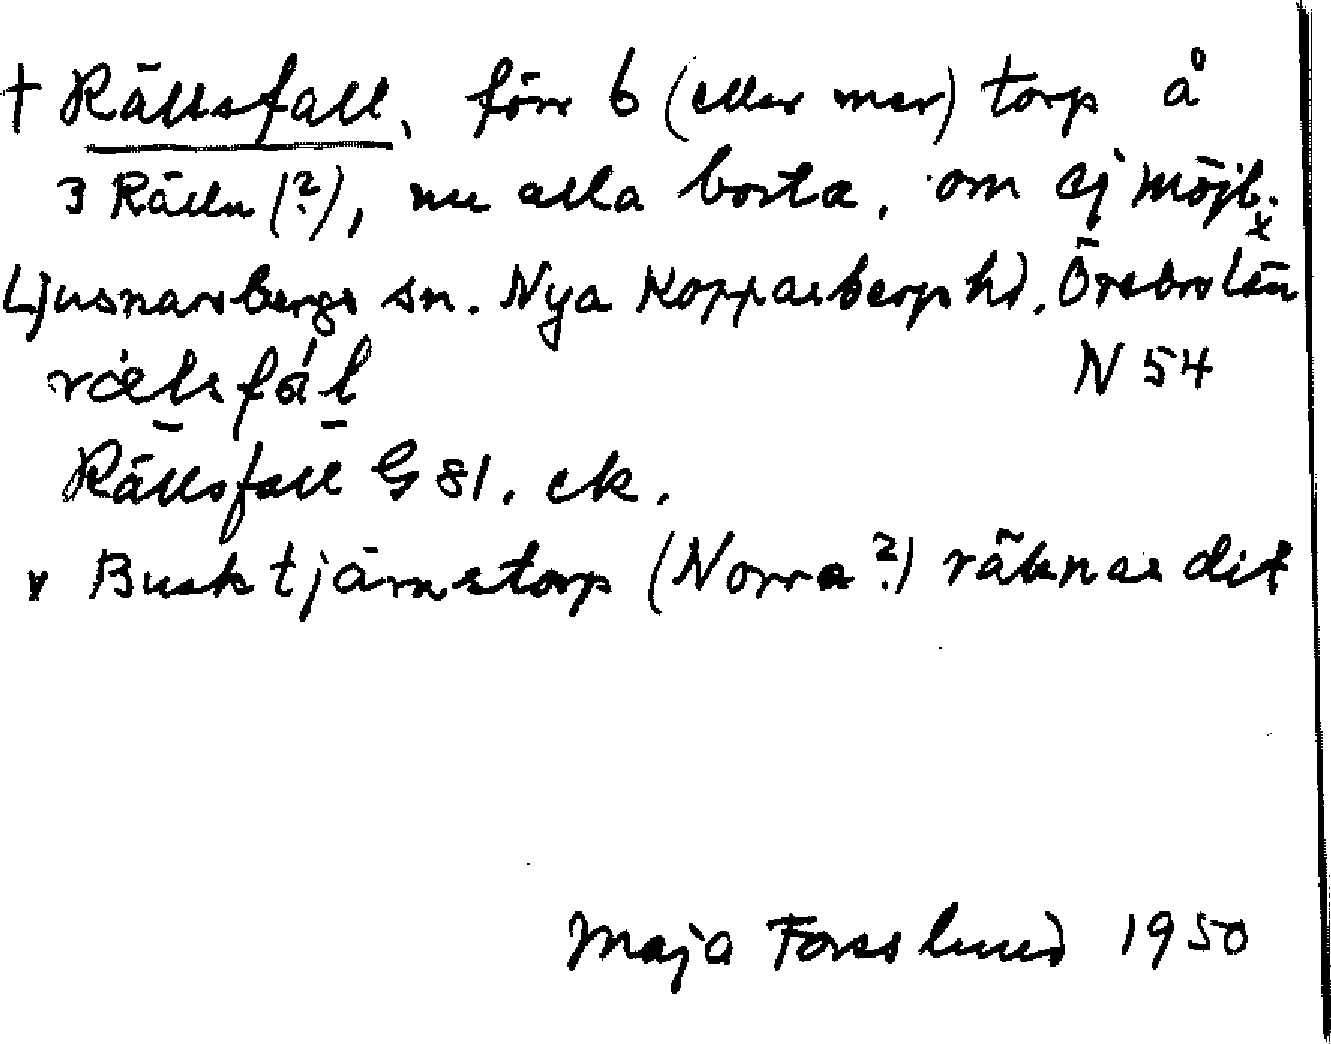 † Rällsfall, förr 6 (eller mer) torp å
3 Rälln (?), nu alla borta, om ej möjl. x
Ljusnarsbergs sn. Nya Kopparbergs hd, Örebro län
N 54
Rällsfall G 81. ek.
x Busktjärnstorp (Norra?) räknas dit
Maja Forsslund 1950